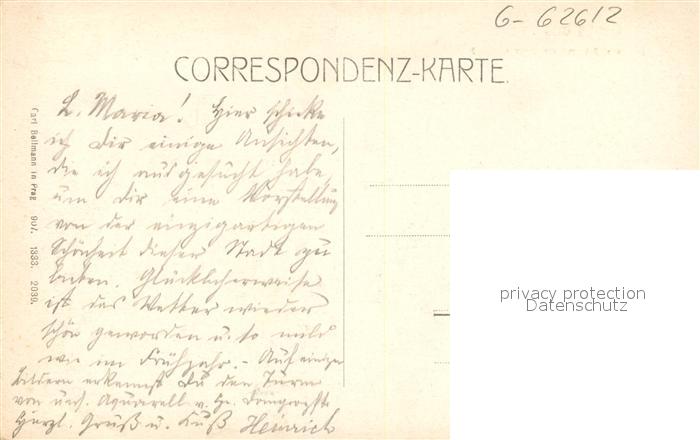 G- 62612
CORRESPONDENZ-KARTE.
L. Maria! Hier schicke
ich Dir einige Ansichten,
die ich ausgesucht habe,
um Dir eine Vorstellung
von der einzigartigen
Schönheit dieser Stadt zu
bieten. Glücklicherweise
ist das Wetter wieder
schön geworden u. so mild
wie im Frühjahr. - Auf einigen
Bildern erkennst Du den Turm
von uns. Aquarell v. Hr.
Herzl. Gruß u. Kuß Heinrich
Carl Bellmann in Prag 907. 1333. 2039.
privacy protection
Datenschutz